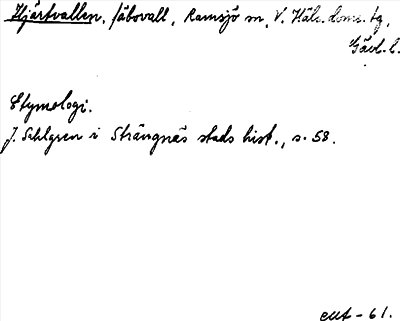 Hjärtvallen, fäbovall, Ramsjö sn, V. Häls. doms. tg,
Gävl. l.
Etymologi.
J. Sahlgren i Strängnäs stads hist., s. 58.
-61.